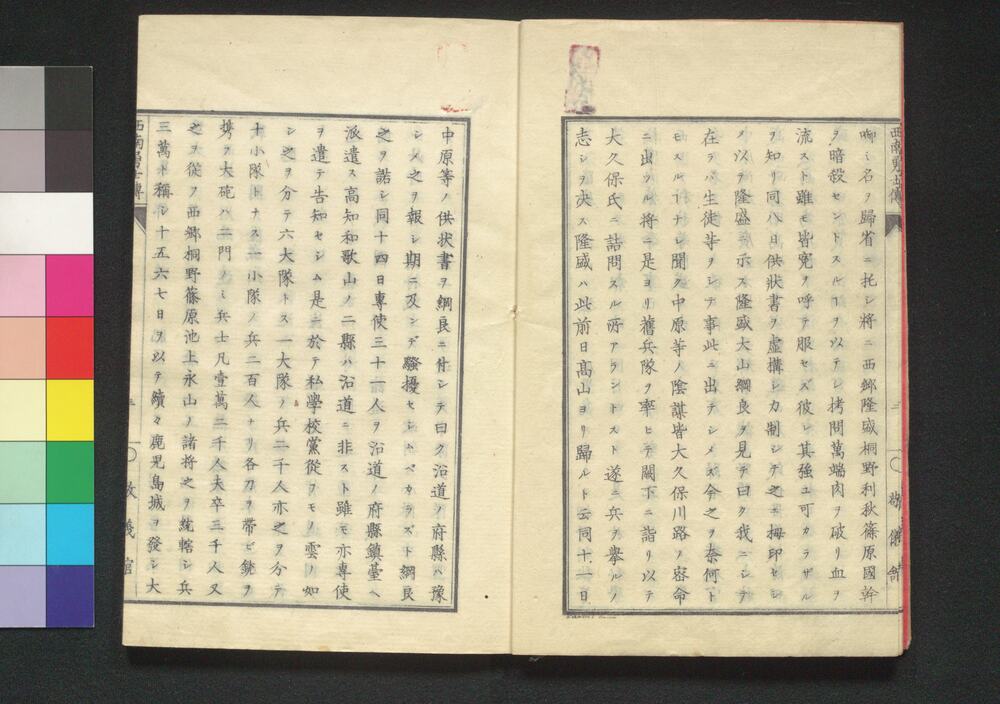 啣ミ名ヲ歸省ニ托シ將ニ西鄉隆盛桐野利秋篠原國幹
ヲ暗殺セントスルヿヲ以テシ拷問萬端肉ヲ破リ血ヲ
流スト雖モ皆寃ヲ呼テ服セズ彼レ其強ユ可カラザル
ヲ知リ同八日供狀書ヲ虛構シ力制シテ之ニ拇印セシ
メ以テ隆盛ニ示ス隆盛大山綱良ヲ見テ曰ク我ニシテ
在ラバ生徒等ヲシテ事此ニ出テシメズ今之ヲ奈何ト
モスルヿナシ聞ク中原等ノ陰謀皆大久保川路ノ容命
ニ出ツル將ニ是ヨリ舊兵隊ヲ率ヒテ闕下ニ詣リ以テ
大久保氏ニ詰問スル所アラントスト遂ニ兵ヲ擧ルノ
志シヲ决ス隆盛ハ此前日高山ヨリ歸ルト云同十二日
中原等ノ供狀書ヲ綱良ニ付シテ曰ク沿道ノ府縣ハ豫
シメ之ヲ報シ期ニ及ンデ騷擾セシムベカラズト綱良
之ヲ諾シ同十四日專使三十一人ヲ沿道ノ府縣鎮臺ヘ
派遣ス高知和歌山ノ二縣ハ沿道ニ非スト雖モ亦專使
ヲ遣テ告知セシム是ニ於テ私學校黨從フモノ雲ノ如
シ之ヲ分テ六大隊トス一大隊ノ兵二千人亦之ヲ分テ
十小隊トナス一小隊ノ兵二百人ナリ各刀ヲ帶ビ銃ヲ
携フ大砲ハ二門ノミ兵士凡壹萬二千人夫卒三千人又
之ヲ從フ西鄉桐野篠原池上永山ノ諸將之ヲ統轄シ兵
三萬ト稱シ十五六七日ヲ以テ續々鹿児島城ヲ發シ大